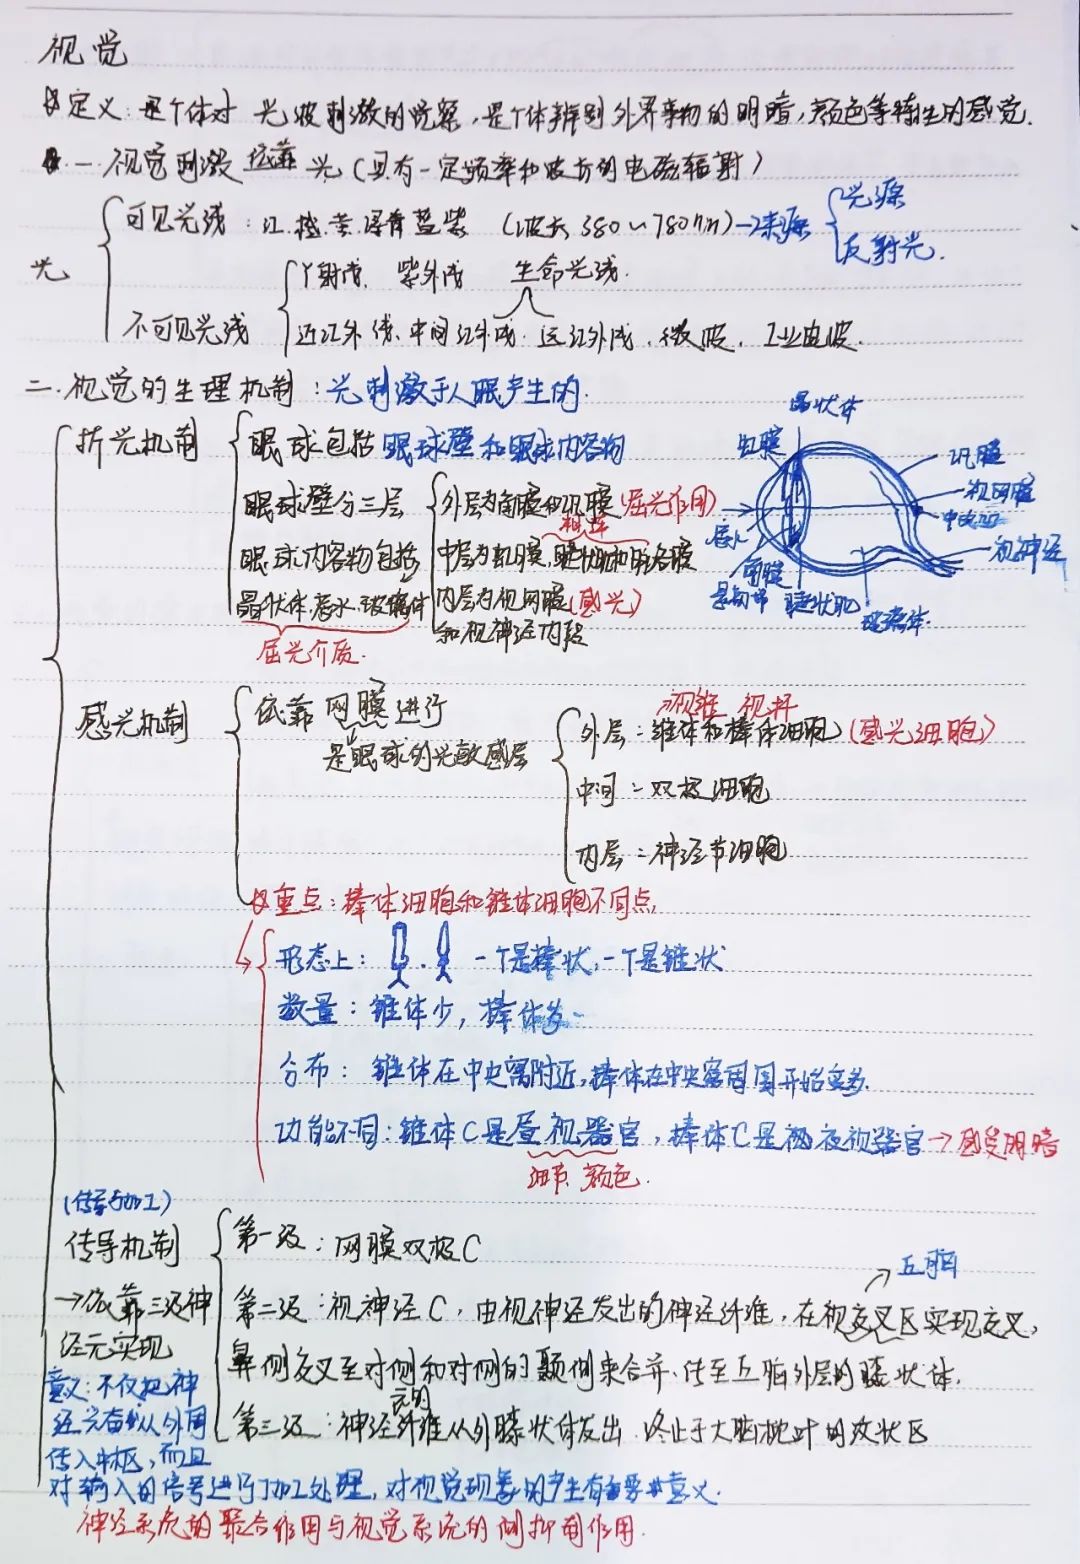 视觉
定义:是个体对 光波刺激的觉察,是个体辨别外界事物的明暗,颜色等特性的感觉.
一.视觉刺激 依靠 光(具有一定频率和波长的电磁辐射)
光
可见光线:红.橙.黄.绿青蓝紫 (波长380~780nm)→来源
光源
反射光.
不可见光线
γ射线. 紫外线 生命光线.
近红外线、中间红外线.远红外线.微波.工业电波.
二.视觉的生理机制:光刺激于人眼产生的.
折光机制
眼球包括眼球壁和眼球内容物
眼球壁分三层
外层为角膜和巩膜(屈光作用)
相连
中层为虹膜,睫状肌和脉络膜
内层为视网膜(感光)
和视神经内段
眼球内容物包括
晶状体.房水.玻璃体
屈光介质.
晶状体
虹膜
巩膜
视网膜
中央凹
视神经
房水
角膜
睫状肌
玻璃体.
感光机制
依靠 网膜进行
是眼球的光敏感层
→视锥 视杆
外层:锥体和棒体细胞(感光细胞)
中间:双极细胞
内层:神经节细胞
重点:棒体细胞和锥体细胞不同点.
形态上: . 一个是棒状,一个是锥状
数量:锥体少,棒体多
分布: 锥体在中央窝附近,棒体在中央窝周围开始变多.
功能不同:锥体C是昼视器官,棒体C是夜视器官→感受明暗
细节.颜色.
(传导与加工)
传导机制
→依靠三级神
经元实现
第一级:网膜双极C
丘脑
第二级:视神经C,由视神经发出的神经纤维,在视交叉区实现交叉,
鼻侧交叉至对侧和对侧的颞侧束合并.传至丘脑外层的膝状体.
第三级:神经纤维从外膝状体发出.终止于大脑枕叶的纹状区
元的
意义:不仅把神
经兴奋从外周
传入中枢,而且
对输入的信号进行了加工处理,对视觉现象的产生有重要意义.
神经系统的聚合作用与视觉系统的侧抑制作用.